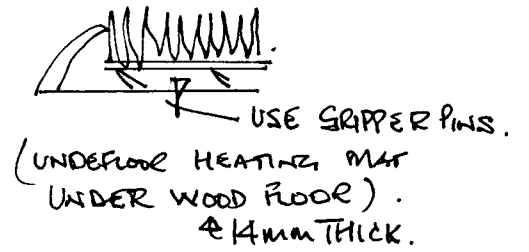 USE GRIPPER PINS.
(UNDEFLOOR HEATING MAT
UNDER WOOD FLOOR).
& 14mm THICK.